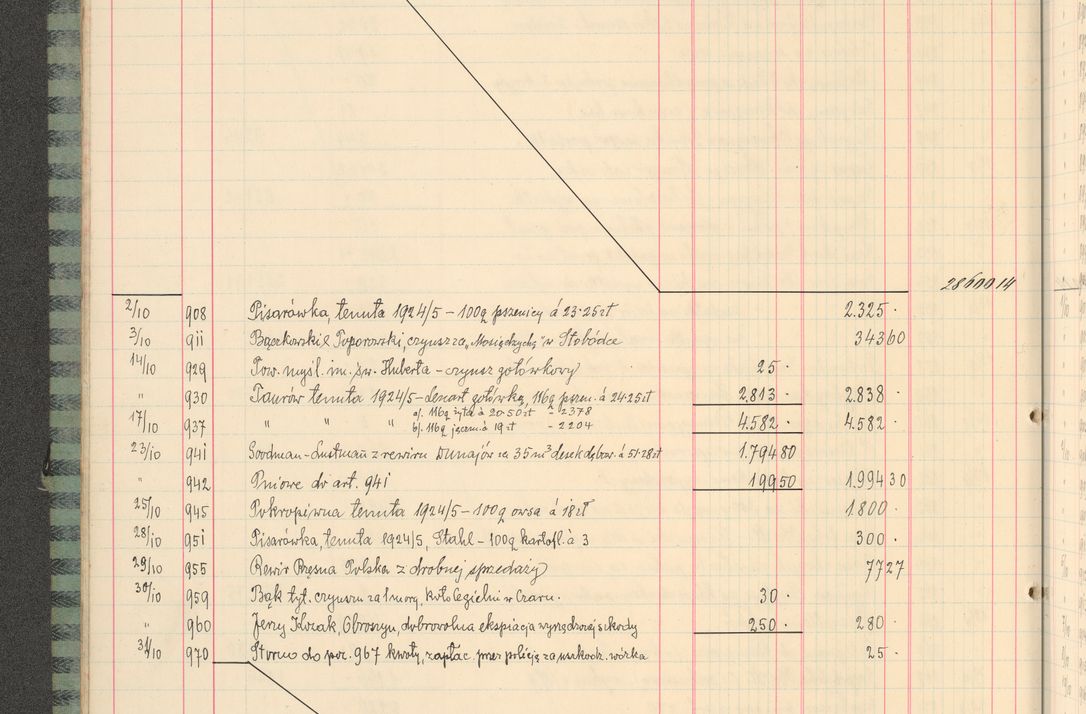 28600 14
2/10 908 Pisarówka, tenuta 1924/5 - 100q pszenicy á 23·25 zł 2.325 ·
3/10 911 Bączkowski & Toporowski, czynsz za „ w Słobódce 343 60
14/10 929 Tow. myśl. im. św. Huberta - czynsz gotówkowy 25 ·
" 930 Taurów tenuta 1924/5 - gotówką, 116q pszen. á 24·25 zł 2.813 · 2.838 ·
17/10 937 " " " a/. 116q żyta á 20·50 zł - 2378 4.582 · 4.582 ·
b/. 116q jęczm. á 19 zł - 2204
23/10 941 Goodman-Lustman z rewiru Dunajów za 35 m³ desek dębow. á 51·28 zł 1.794 80
" 942 Pniowe do art. 941 199 50 1.994 30
25/10 945 Pokropiwna tenuta 1924/5 - 100q owsa á 18 zł 1800 ·
28/10 951 Pisarówka, tenuta 1924/5, Stahl - 100q kartofl. á 3 300 ·
29/10 955 Rewir Rzęsna Polska z drobnej sprzedaży 77 27
30/10 959 Bąk tyt. czynszu za 1 morg. koło Cegielni w Czaru. 30 ·
" 960 Jerzy Kozak, Obroszyn, dobrowolna ekspiacja wyrządzonej szkody 250 · 280 ·
31/10 970 Storno do poz. 967 kwoty, zapłac. przez policję za uszkodz. wózka 25 ·